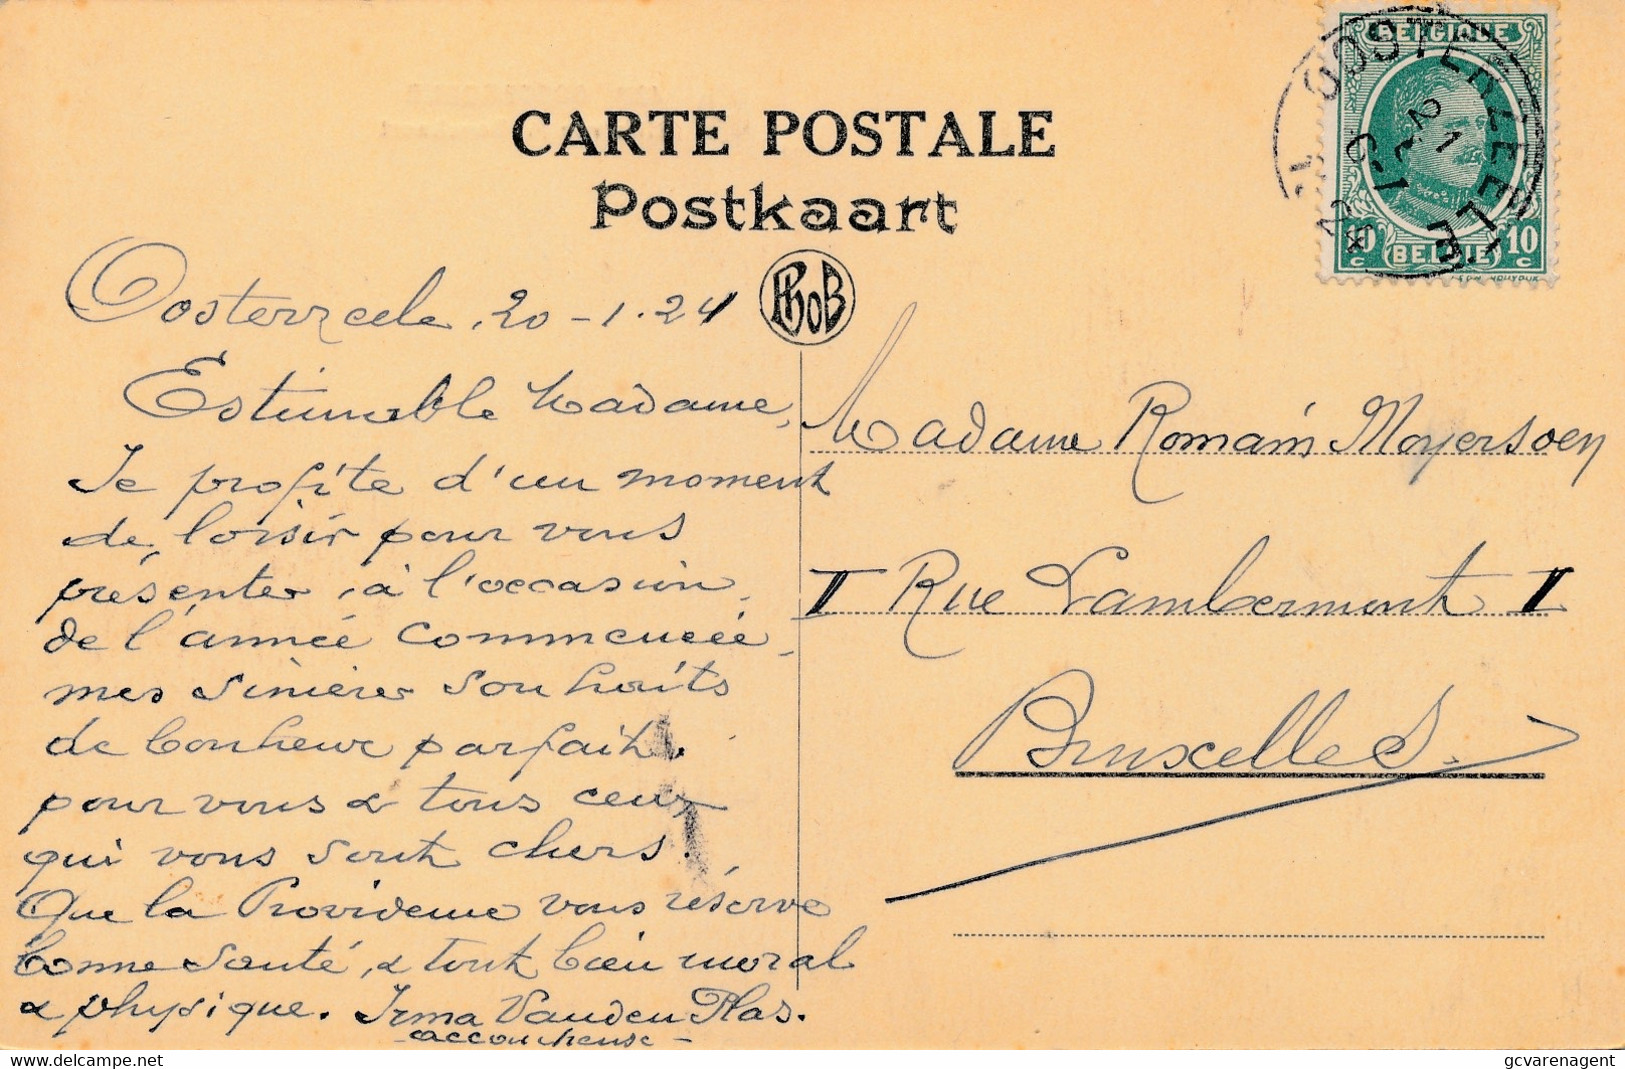 CARTE POSTALE
Postkaart
PhoB
BELGIQUE
10 c BELGIE 10 c
OOSTERZEELE
21
Oosterzeele, 20-1.24
Estimable Madame,
Je profite d'un moment
de loisir pour vous
présenter, à l'occasion
de l'année commencée
mes sincères souhaits
de bonheur parfait.
pour vous & tous ceux
qui vous sont chers.
Que la Providence vous réserve
bonne santé, & tout bien moral
& physique. Irma Vanden Plas.
- accoucheuse -
Madame Romain Moyersoen
II Rue Lambermont II
Bruxelles.
gcvarenagent